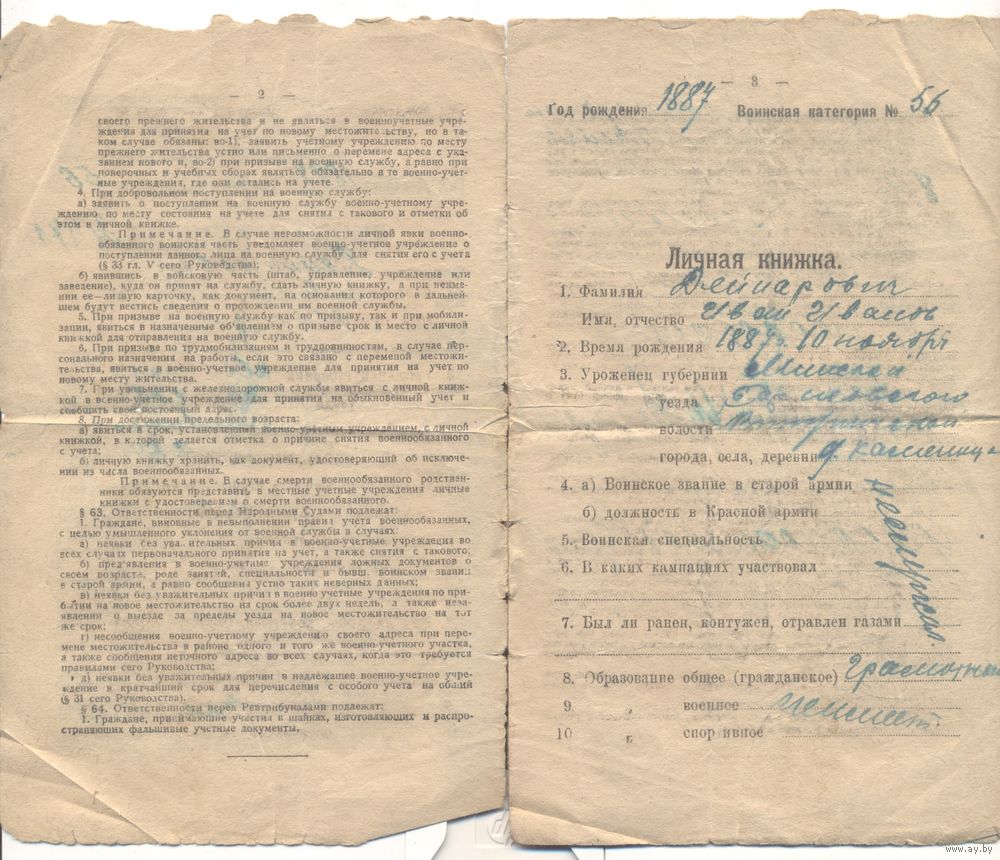 — 2 —
своего прежнего жительства и не являться в военноучетные учре-
ждения для принятия на учет по новому местожительству, но в та-
ком случае обязаны: во-1), заявить учетному учреждению по месту
прежнего жительства устно или письменно о перемене адреса с ука-
занием нового и, во-2) при призыве на военную службу, а равно при
поверочных и учебных сборах являться обязательно в те военно-учет-
ные учреждения, где они остались на учете.
4. При добровольном поступлении на военную службу:
а) заявить о поступлении на военную службу военно-учетному учре-
ждению по месту состояния на учете для снятия с такового и отметки об
этом в личной книжке.
Примечание. В случае невозможности личной явки военно-
обязанного воинская часть уведомляет военно-учетное учреждение о
поступлении данного лица на военную службу для снятия его с учета
(§ 33 гл. V сего Руководства);
б) явившись в войсковую часть (штаб, управление, учреждение или
заведение), куда он принят на службу, сдать личную книжку, а при неиме-
нии ее—личную карточку, как документ, на основании которого в дальней-
шем будут вестись сведения о прохождении им военной службы.
5. При призыве на военную службу как по призыву, так и при мобили-
зации, явиться в назначенные объявлением о призыве срок и место с личной
книжкой для отправления на военную службу.
6. При призыве по трудмобилизациям и трудповинностям, в случае пер-
сонального назначения на работы, если это связано с переменой местожи-
тельства, явиться в военно-учетное учреждение для принятия на учет по
новому месту жительства.
7. При увольнении с железнодорожной службы явиться с личной книж-
кой в военно-учетное учреждение для принятия на обыкновенный учет и
сообщить свое постоянный адрес.
8. При достижении предельного возраста:
а) явиться в срок, установленный военно-учетным учреждением, с личной
книжкой, в которой делается отметка о причине снятия военнообязанного
с учета;
б) личную книжку хранить, как документ, удостоверяющий об исключе-
нии из числа военнообязанных.
Примечание. В случае смерти военнообязанного родствен-
ники обязуются представить в местные учетные учреждения личные
книжки с удостоверением о смерти военнообязанного.
§ 63. Ответственности перед Народными Судами подлежат:
1. Граждане, виновные в невыполнении правил учета военнообязанных,
с целью умышленного уклонения от военной службы в случаях:
а) неявки без уважительных причин в военно-учетные учреждения во
всех случаях первоначального принятия на учет, а также снятия с такового;
б) предъявления в военно-учетные учреждения ложных документов о
своем возрасте, роде занятий, специальности и бывш. воинском звании
в старой армии, а равно сообщения устно таких неверных данных;
в) неявки без уважительных причин в военно учетные учреждения по при-
бытии на новое местожительство на срок более двух недель, а также неза-
явлении о выезде за пределы уезда на новое местожительство на тот
же срок;
г) несообщения военно-учетному учреждению своего адреса при пере-
мене местожительства в районе одного и того же военно-учетного участка,
а также сообщения неточного адреса во всех случаях, когда это требуется
правилами сего Руководства;
д) неявки без уважительных причин в надлежащее военно-учетное учре-
ждение в кратчайший срок для перечисления с особого учета на общий
(§ 31 сего Руководства).
§ 64. Ответственности перед Ревтрибуналами подлежат:
1. Граждане, принимающие участия в шайках, изготовляющих и распро-
страняющих фальшивые учетные документы.
— 3 —
Год рождения 1887 Воинская категория № 56
Личная книжка.
1. Фамилия
Имя, отчество Иван Иванов
2. Время рождения 1887 10 ноября
3. Уроженец губернии Минской
уезда
волости
города, села, деревни д Каменица
4. а) Воинское звание в старой армии
б) должность в Красной армии
5. Воинская специальность
6. В каких кампаниях участвовал
не служил
7. Был ли ранен, контужен, отравлен газами
8. Образование общее (гражданское) грамотный
9 „ военное
10 „ спор ивное
www.ay.by